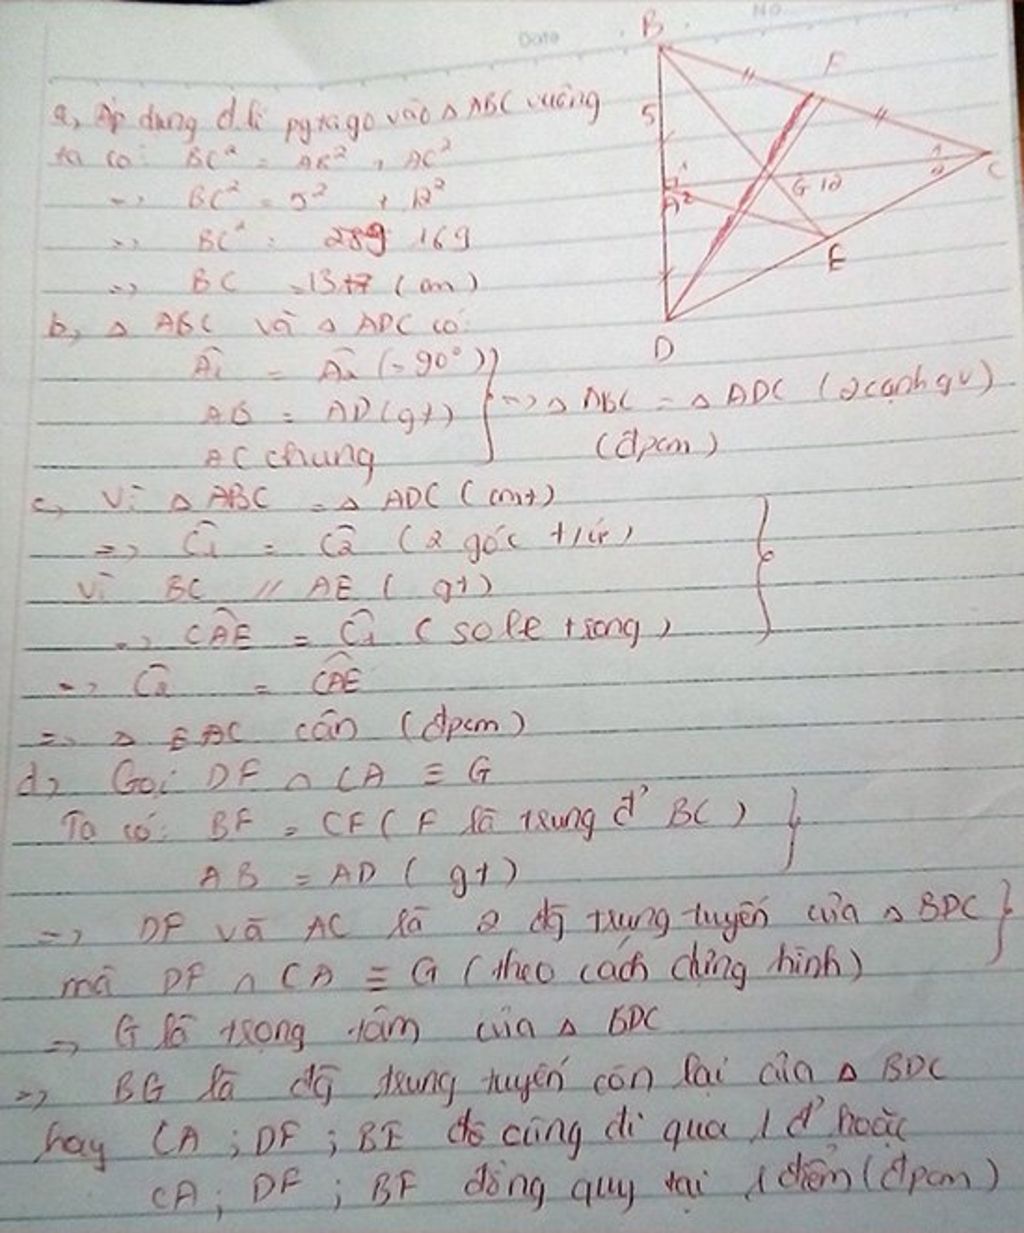 Date No
B
F
5
1
1
2
C
A 2
G 12
E
D
a, Áp dụng đ.lí pytago vào Δ ABC vuông
ta có: BC² = AB² + AC²
=> BC² = 5² + 12²
=> BC² = 289 169
=> BC = 13 17 (cm)
b, Δ ABC và Δ ADC có:
Â1 = Â2 (= 90°)
AB = AD (gt) => Δ ABC = Δ ADC (2 cạnh gv)
AC chung (đpcm)
c, Vì Δ ABC = Δ ADC (cmt)
=> Ĉ1 = Ĉ2 (2 góc t/ứ)
Vì BC // AE (gt)
=> CAE = Ĉ1 (so le trong)
=> Ĉ2 = CAE
=> Δ EAC cân (đpcm)
d, Gọi DF ∩ CA ≡ G
Ta có: BF = CF (F là trung đ' BC)
AB = AD (gt)
=> DF và AC là 2 đg trung tuyến của Δ BDC
mà DF ∩ CA ≡ G (theo cách dựng hình)
=> G là trọng tâm của Δ BDC
=> BG là đg trung tuyến còn lại của Δ BDC
hay CA ; DF ; BE đó cùng đi qua 1 đ' hoặc
CA ; DF ; BF đồng quy tại 1 điểm (đpcm)